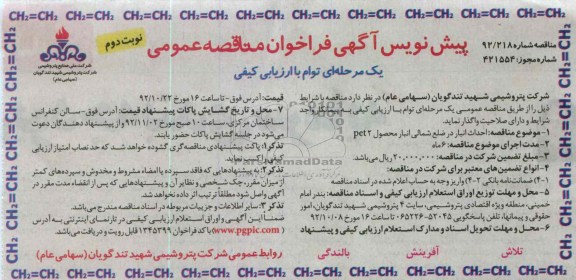 CH₂=CH₂ CH₂=CH₂ CH₂=CH₂ CH₂=CH₂ CH₂=CH₂ CH₂=CH₂
نوبت دوم
پیش نویس آگهی فراخوان مناقصه عمومی
یک مرحله‌ای توام با ارزیابی کیفی
مناقصه شماره ۹۲/۲۱۸
شماره مجوز: ۴۲۱۵۵۴
شرکت ملی صنایع پتروشیمی
شرکت پتروشیمی شهید تندگویان
(سهامی عام)
شرکت پتروشیمی شهید تندگویان (سهامی عام) در نظر دارد مناقصه با شرایط
ذیل را از طریق مناقصه عمومی یک مرحله‌ای توام با ارزیابی کیفی به پیمانکار واجد
شرایط و دارای صلاحیت واگذار نماید.
۱- موضوع مناقصه: احداث انبار در ضلع شمالی انبار محصول pet2
۲- مدت اجرای موضوع مناقصه: ۶ ماه
۳- مبلغ تضمین شرکت در مناقصه: ۲۰۰,۰۰۰,۰۰۰ ریال می‌باشد.
۴- انواع تضمین های معتبر برای شرکت در مناقصه:
۴-۱) ضمانتنامه بانکی ۴-۲) واریز وجه به حساب اعلام شده در اسناد مناقصه
۵- محل و مهلت توزیع اوراق استعلام ارزیابی کیفی و اسناد مناقصه: بندر امام
خمینی، منطقه ویژه اقتصادی پتروشیمی، سایت ۴ پتروشیمی شهید تندگویان، امور
حقوقی و پیمانها، تلفن پاسخگویی ۵۲۰۴۵-۰۶۵۲۲۶ تا ساعت ۱۶ مورخ ۹۲/۱۰/۰۸
۶- محل و مهلت تحویل اسناد و مدارک استعلام ارزیابی کیفی و پیشنهاد
قیمت: آدرس فوق- تا ساعت ۱۶ مورخ ۹۲/۱۰/۲۲
۷- محل و تاریخ گشایش پاکات پیشنهاد قیمت: آدرس فوق- سالن کنفرانس
ساختمان مرکزی، ساعت ۱۰ صبح مورخ ۹۲/۱۱/۰۲ و از پیشنهاد دهندگان دعوت
می‌شود در جلسه گشایش پاکات حضور یابند.
تذکر۱: پاکت پیشنهادی مناقصه گری گشوده خواهد شد که حد نصاب امتیاز ارزیابی
کیفی را کسب نماید.
تذکر۲: به پیشنهادهایی که فاقد سپرده یا امضاء مشروط و مخدوش و سپرده‌های کمتر
از میزان مقرر، چک شخصی و نظایر آن و پیشنهادهایی که پس از انقضاء مدت مقرر در
آگهی واصل شود مطلقا ترتیب اثر داده نخواهد شد.
تذکر۳: سایر اطلاعات و جزییات مربوطه در اسناد مناقصه مندرج می‌باشد.
ضمنا این آگهی و اوراق استعلام ارزیابی کیفی در تارنمای اینترنتی به آدرس
(www.pgpic.com) با کد فراخوان ۱۳۴۵۳۹۹ قابل رویت و دریافت می‌باشد.
تلاش آفرینش بالندگی
روابط عمومی شرکت پتروشیمی شهید تندگویان (سهامی عام)
CH₂=CH₂ CH₂=CH₂ CH₂=CH₂ CH₂=CH₂ CH₂=CH₂ CH₂=CH₂